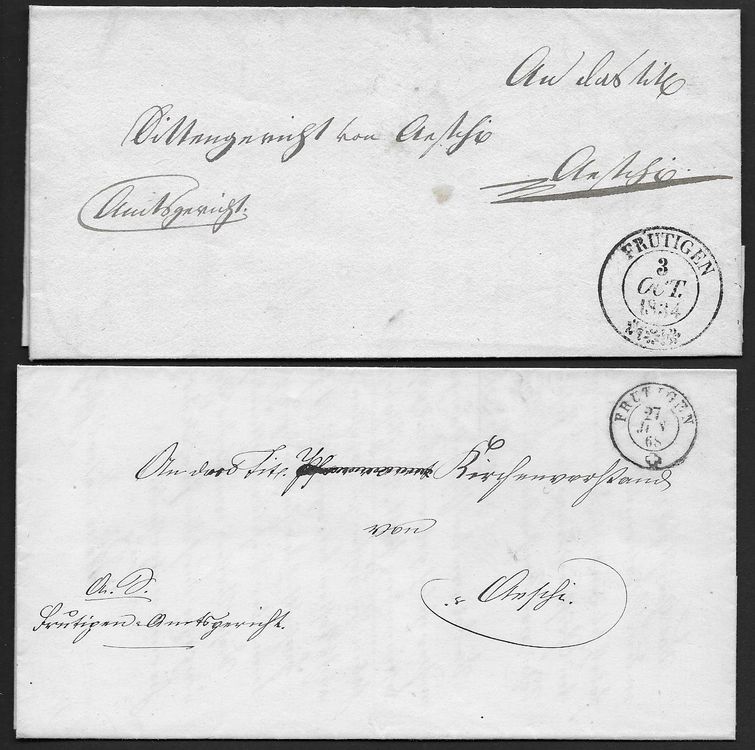 An das tit.
Sittengericht von Aeschi
Aeschi.
Amtsgericht.
FRUTIGEN
3
OCT.
1834
FRUTIGEN
27
68
An das Tit. Kirchenvorstand
von
Aeschi.
A. S.
Frutigen-Amtsgericht.